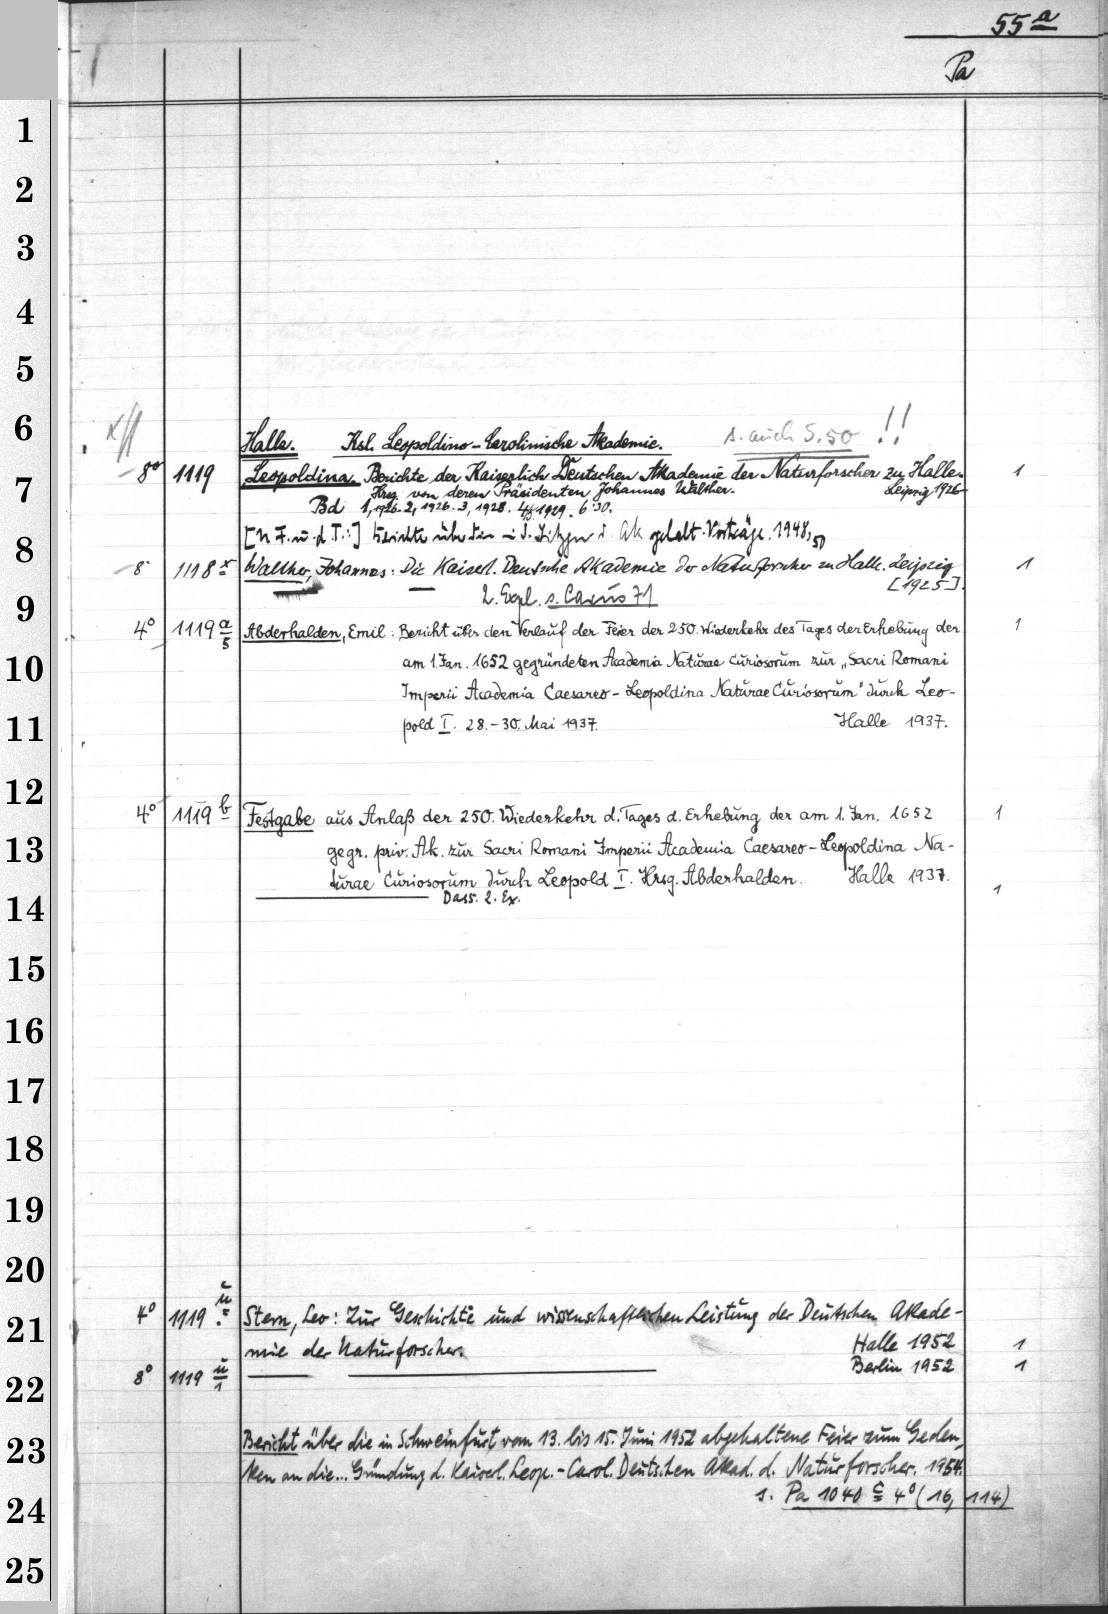 55 a
Pa
1
2
3
4
5
6
7
8
9
10
11
12
13
14
15
16
17
18
19
20
21
22
23
24
25
Halle. Ksl. Leopoldino-Carolinische Akademie. s. auch S. 50 !!
8° 1119 Leopoldina. Berichte der Kaiserlich Deutschen Akademie der Naturforscher zu Halle. 1
Hrsg. von deren Präsidenten Johannes Walther. Leipzig 1926-
Bd 1, 1926. 2, 1926. 3, 1928. 4/5 1929. 6 '30.
[N F. u. d. T.:] Berichte über die i. d. Sitzgn d. Ak gehalt. Vorträge. 1948, 50
8° 1118 x Walther, Johannes: Die Kaiserl. Deutsche Akademie der Naturforscher zu Halle. Leipzig 1
[1925].
2. Expl. s. Carus 71
4° 1119 a/5 Abderhalden, Emil: Bericht über den Verlauf der Feier der 250. Wiederkehr des Tages der Erhebung der 1
am 1. Jan. 1652 gegründeten Academia Naturae Curiosorum zur „Sacri Romani
Imperii Academia Caesareo-Leopoldina Naturae Curiosorum" durch Leo-
pold I. 28.-30. Mai 1937. Halle 1937.
4° 1119 b Festgabe aus Anlaß der 250. Wiederkehr d. Tages d. Erhebung der am 1. Jan. 1652 1
gegr. priv. Ak. zur Sacri Romani Imperii Academia Caesareo-Leopoldina Na-
turae Curiosorum durch Leopold I. Hrsg. Abderhalden. Halle 1937.
Dass. 2. Ex. 1
4° 1119 u Stern, Leo: Zur Geschichte und wissenschaftlichen Leistung der Deutschen Akade-
mie der Naturforscher. Halle 1952 1
8° 1119 u/1 Berlin 1952 1
Bericht über die in Schweinfurt vom 13. bis 15. Juni 1952 abgehaltene Feier zum Geden-
ken an die... Gründung d. Kaiserl. Leop.-Carol. Deutschen Akad. d. Naturforscher. 1954.
s. Pa 1040 c 4° (16, 114)